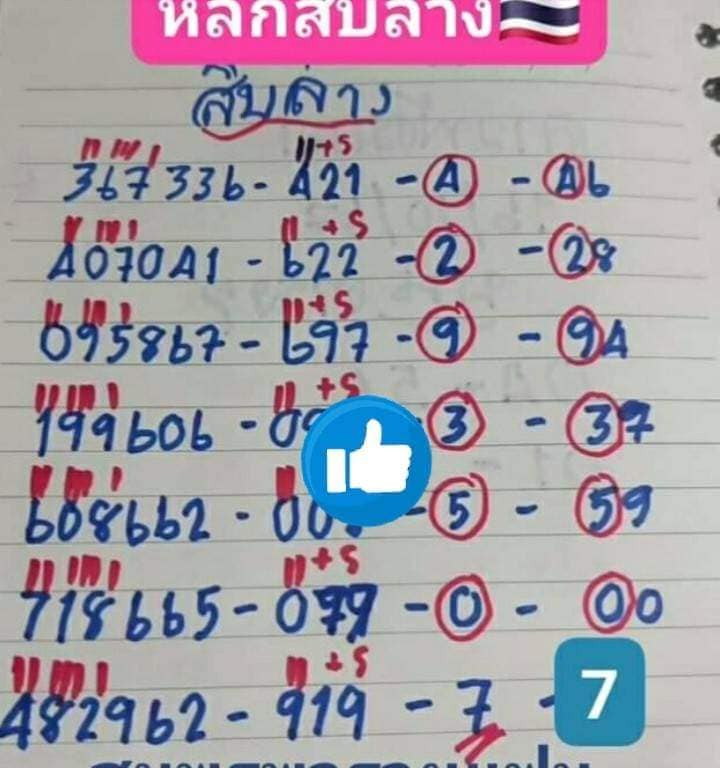 หลักสิบล่าง
สิบล่าง
+5
367336 - 421 - 4 - 46
+5
407041 - 622 - 2 - 28
+5
095867 - 697 - 9 - 94
+5
199606 - 0 - 3 - 37
608662 - 00 - 5 - 59
+5
718665 - 079 - 0 - 00
+5
482962 - 919 - 7 - 7